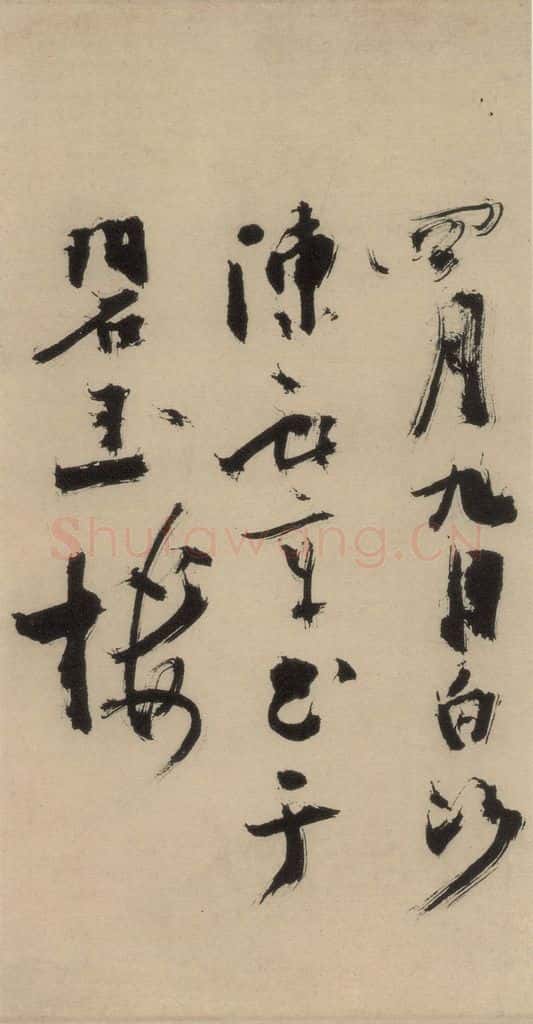 四月九日白沙
陳獻章書于
碧玉樓
Shufawang.CN